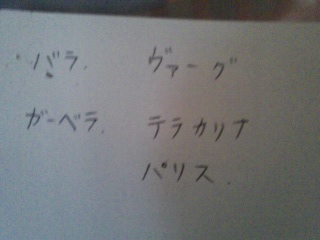 バラ. ヴァーグ
ガーベラ. テラカリナ
パリス.